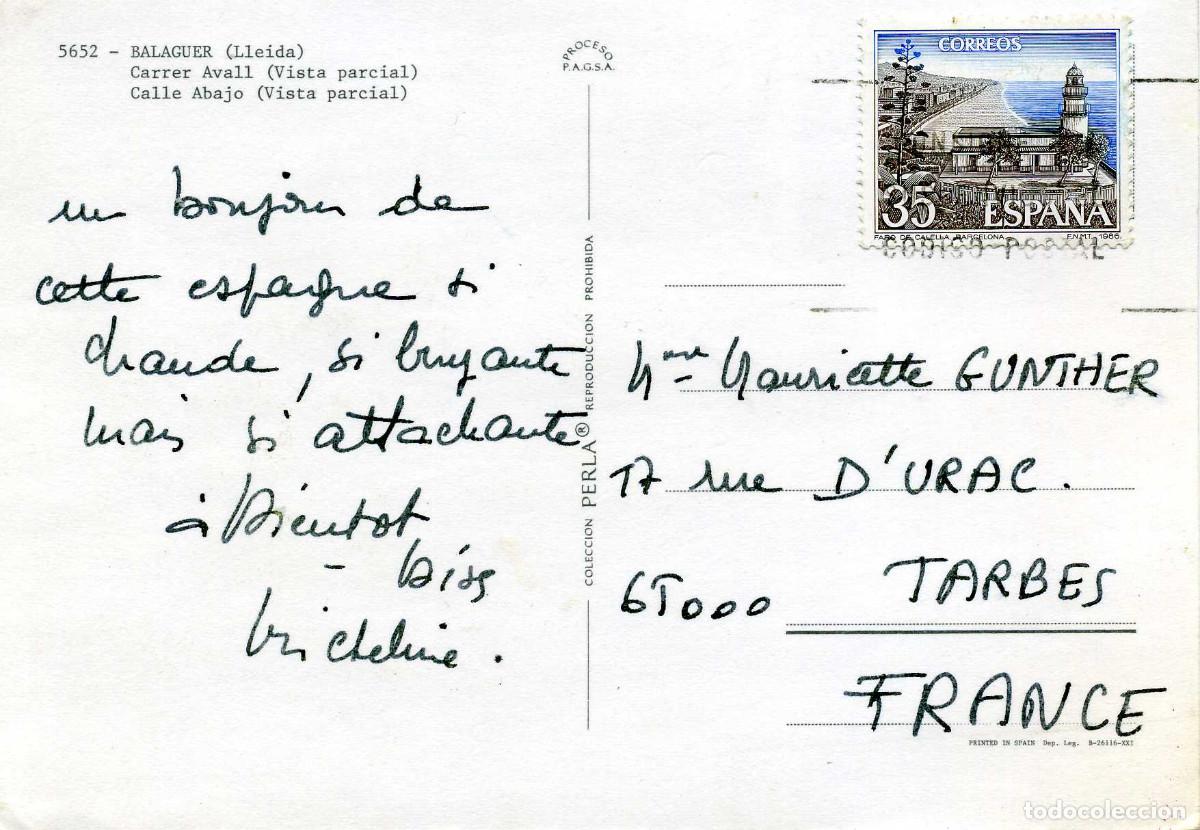 5652 - BALAGUER (Lleida)
Carrer Avall (Vista parcial)
Calle Abajo (Vista parcial)
un bonjour de
cette espagne si
chaude, si bruyante
mais si attachante
à bientot
- bises
Micheline.
PROCESO
P.A.G.S.A.
COLECCION PERLA® REPRODUCCION PROHIBIDA
CORREOS
35 ESPAÑA
FARO DE CALELLA, BARCELONA F.N.M.T. 1986
CODIGO POSTAL
Mme Mauricette GUNTHER
17 rue D'URAC.
65000 TARBES
FRANCE
PRINTED IN SPAIN Dep. Leg. B-26116-XXI
todocoleccion